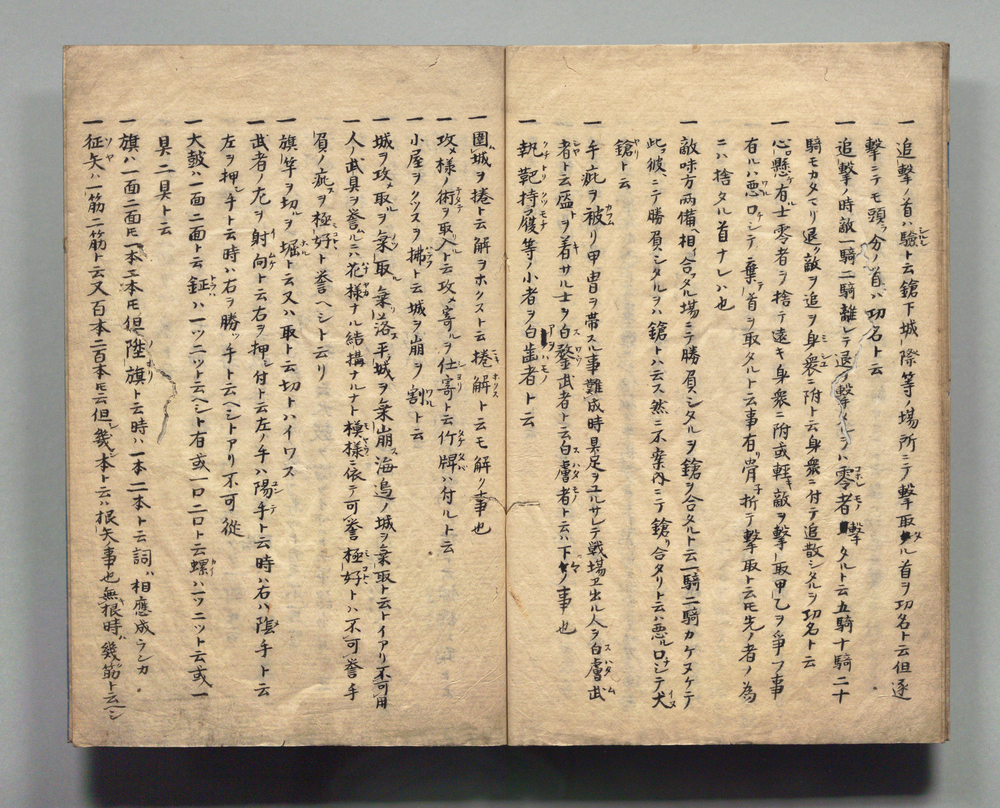 一追撃ノ首ハ驗ト云鎗下城際等ノ場所ニテ撃取タル首ヲ功名ト云但逐
撃ニテモ頭分ノ首ハ功名ト云
一追撃ノ時敵一騎二騎離レテ退ヲ撃タルヲハ零者撃タルト云五騎十騎二十
騎モカタマリ退ク敵ヲ追ヲ身衆ニ附ト云身衆ニ付テ追散シタルヲ功名ト云
一心懸有ル士零者ヲ捨テ遠キ身衆ニ附或輕キ敵ヲ撃取甲乙ヲ爭フ事
有ルハ悪ロケシテ棄首ヲ取タルト云事有リ骨ヲ折テ撃取ト云トモ先ノ者ノ為
ニハ捨タル首ナレハ也
一敵味方両備相合タル場ニテ勝屓シタルヲ鎗ヲ合タルト云一騎二騎カケヌケテ
此彼ニテ勝屓シタルヲハ鎗トハ云ス然ニ不案内ニテ鎗合タリト云ハ悪ロシテ犬
鎗ト云
一手疵ヲ被リ甲曽ヲ帯スル事難成時具足ヲユルサレテ戦場ヱ出ル人ヲ白膚武
者ト云盔ヲ着サル士ヲ白鏊武者ト云白膚者ト云ハ下々ノ事也
一執靶持履等ノ小者ヲ白歯者ト云
一圍城ヲ捲ト云解ヲホクスト云捲解トモ云解ク事也
一攻様ノ術ヲ取入ト云攻メ寄ルヲ仕寄ト云竹牌ハ付ルト云
一小屋ヲクツスヲ拂ト云城ヲ崩ヲ割ト云
一城ヲ攻取ヲ乗取ル乗落平城ヲ乗崩ス海嶋ノ城ヲ乗取ト云トイアリ不可用
一人ノ武具ヲ誉ルニハ花様ナル結構ナルナト模様ニ依テ可誉極好トハ不可誉手
屓ノ疵ヲ極好ト誉ヘシト云リ
一旗竿ヲ切ルヲ堀ト云又ハ取ト云切トハイワス
一武者ノ左ヲ射向ト云右ヲ押付ト云左ノ手ハ陽手ト云時ハ右ハ陰手ト云
左ヲ押手ト云時ハ右ヲ勝手ト云ヘシトアリ不可從
一大鼓ハ一面二面ト云鉦ハ一ツ二ツト云ヘシト有或一口二口ト云螺ハ一ツ二ツト云或一
具二具ト云
一旗ハ一面二面トモ一本二本トモ但陞旗ト云時ハ一本二本ト云詞ハ相應成ランカ
一征矢ハ一筋二筋ト云又百本二百本トモ云但幾本ト云ハ根矢事也無根時ハ幾筋ト云ヘシ